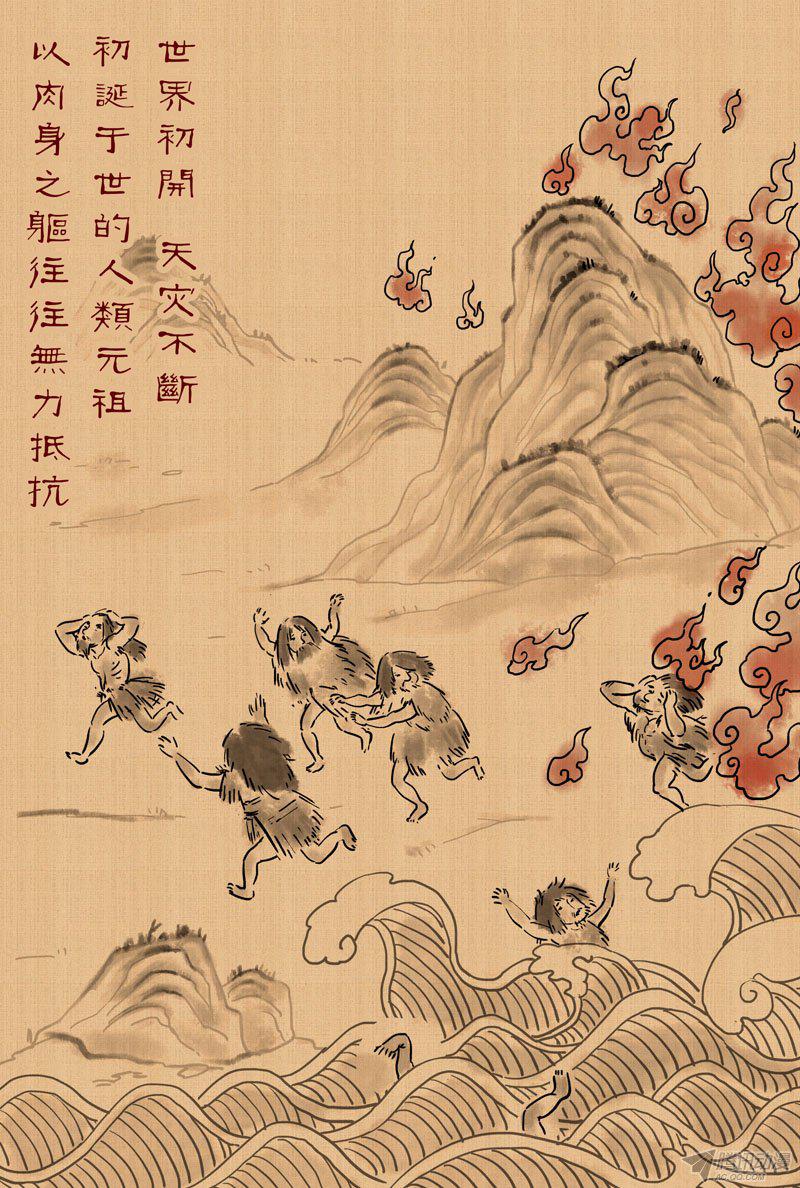 世界初開 天灾不斷
初誕于世的人類元祖
以肉身之軀往往無力抵抗
腾讯动漫
AC.QQ.COM